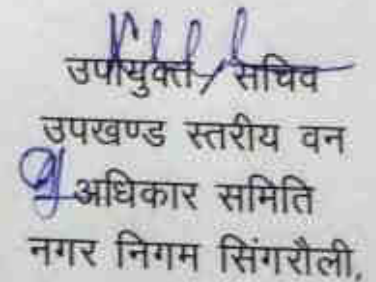 उपायुक्त/सचिव
उपखण्ड स्तरीय वन
अधिकार समिति
नगर निगम सिंगरौली,